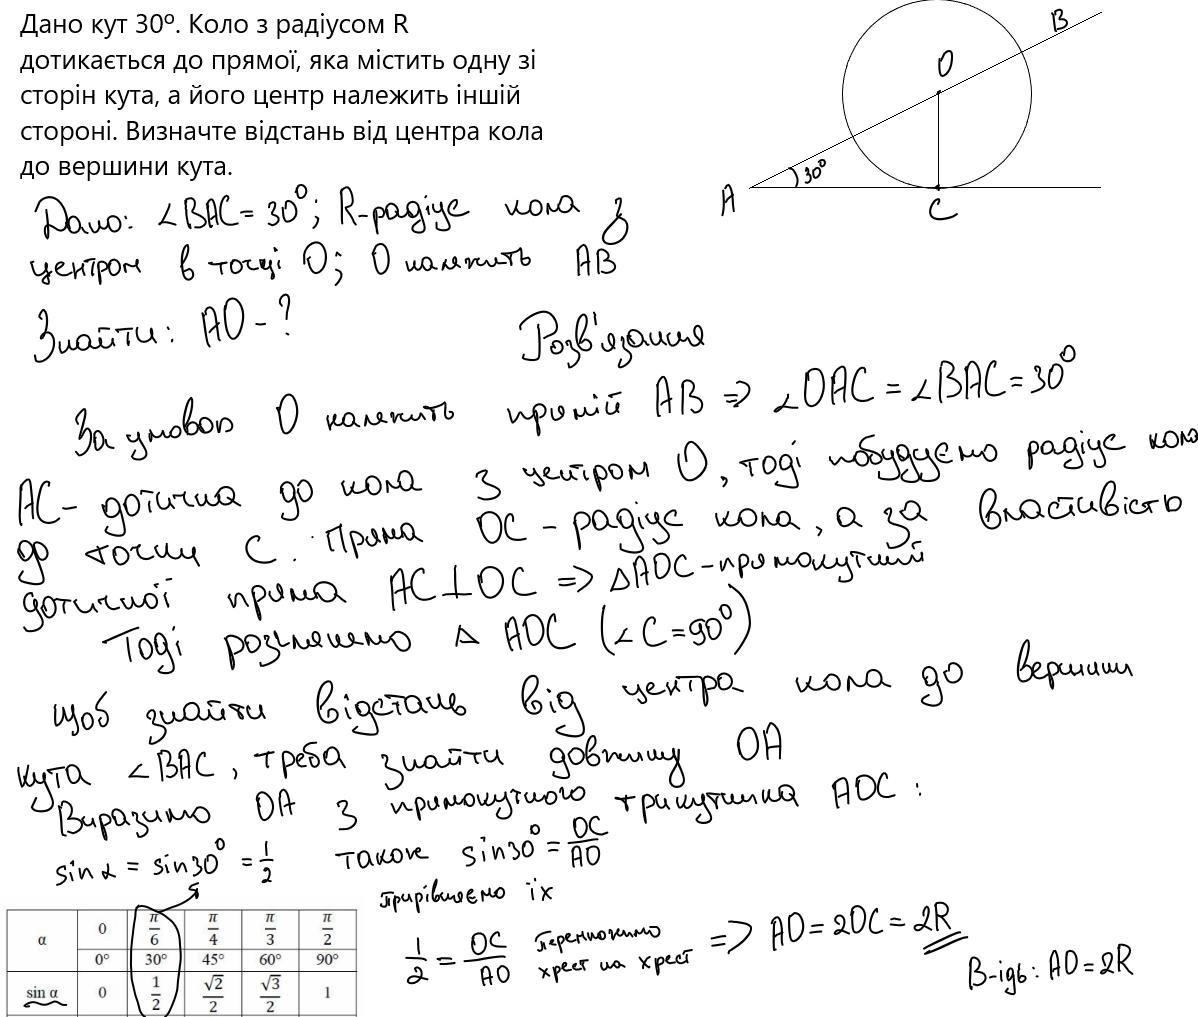 Дано кут 30º. Коло з радіусом R
дотикається до прямої, яка містить одну зі
сторін кута, а його центр належить іншій
стороні. Визначте відстань від центра кола
до вершини кута.
B
O
30⁰
A
C
Дано: ∠BAC = 30⁰; R-радіус кола з
центром в точці O; O належить AB
Знайти: AO - ?
Розв'язання
За умовою O належить прямій AB => ∠OAC = ∠BAC = 30⁰
AC - дотична до кола з центром O, тоді побудуємо радіус кола
до точки C. Пряма OC - радіус кола, а за властивість
дотичної пряма AC⊥OC => △AOC - прямокутний
Тоді розглянемо △ AOC (∠C = 90⁰)
Щоб знайти відстань від центра кола до вершини
кута ∠BAC, треба знайти довжину OA
Виразимо OA з прямокутного трикутника AOC :
sin α = sin 30⁰ = 1/2 також sin 30⁰ = OC/AO
прирівнюємо їх
1/2 = OC/AO перемножимо хрест на хрест => AO = 2OC = 2R
В-ідь: AO = 2R
α 0 π/6 π/4 π/3 π/2
0° 30° 45° 60° 90°
sin α 0 1/2 √2/2 √3/2 1